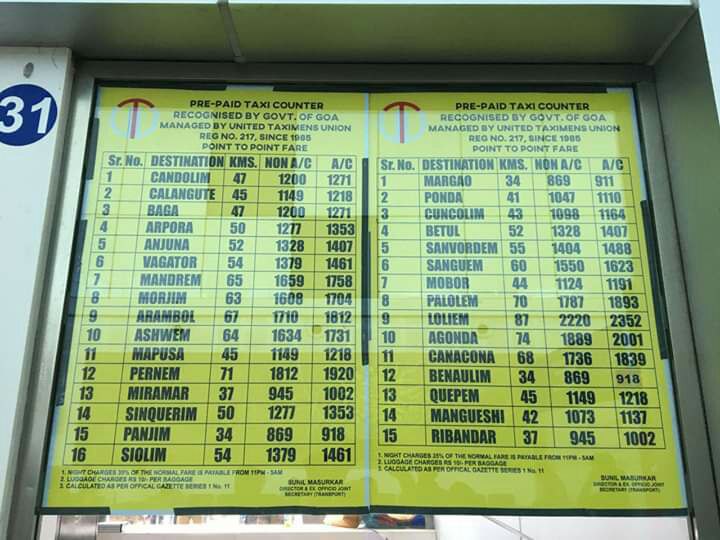 31
PRE-PAID TAXI COUNTER
RECOGNISED BY GOVT. OF GOA
MANAGED BY UNITED TAXIMENS UNION
REG NO. 217, SINCE 1985
POINT TO POINT FARE
Sr. No. DESTINATION KMS. NON A/C A/C
1 CANDOLIM 47 1200 1271
2 CALANGUTE 45 1149 1218
3 BAGA 47 1200 1271
4 ARPORA 50 1277 1353
5 ANJUNA 52 1328 1407
6 VAGATOR 54 1379 1461
7 MANDREM 65 1659 1758
8 MORJIM 63 1608 1704
9 ARAMBOL 67 1710 1812
10 ASHWEM 64 1634 1731
11 MAPUSA 45 1149 1218
12 PERNEM 71 1812 1920
13 MIRAMAR 37 945 1002
14 SINQUERIM 50 1277 1353
15 PANJIM 34 869 918
16 SIOLIM 54 1379 1461
1. NIGHT CHARGES 35% OF THE NORMAL FARE IS PAYABLE FROM 11PM - 5AM
2. LUGGAGE CHARGES RS 10/- PER BAGGAGE
3. CALCULATED AS PER OFFICAL GAZETTE SERIES 1 No. 11
SUNIL MASURKAR
DIRECTOR & EX. OFFICIO JOINT
SECRETARY (TRANSPORT)
PRE-PAID TAXI COUNTER
RECOGNISED BY GOVT. OF GOA
MANAGED BY UNITED TAXIMENS UNION
REG NO. 217, SINCE 1985
POINT TO POINT FARE
Sr. No. DESTINATION KMS. NON A/C A/C
1 MARGAO 34 869 911
2 PONDA 41 1047 1110
3 CUNCOLIM 43 1098 1164
4 BETUL 52 1328 1407
5 SANVORDEM 55 1404 1488
6 SANGUEM 60 1550 1623
7 MOBOR 44 1124 1191
8 PALOLEM 70 1787 1893
9 LOLIEM 87 2220 2352
10 AGONDA 74 1889 2001
11 CANACONA 68 1736 1839
12 BENAULIM 34 869 918
13 QUEPEM 45 1149 1218
14 MANGUESHI 42 1073 1137
15 RIBANDAR 37 945 1002
1. NIGHT CHARGES 35% OF THE NORMAL FARE IS PAYABLE FROM 11PM - 5AM
2. LUGGAGE CHARGES RS 10/- PER BAGGAGE
3. CALCULATED AS PER OFFICAL GAZETTE SERIES 1 No. 11
SUNIL MASURKAR
DIRECTOR & EX. OFFICIO JOINT
SECRETARY (TRANSPORT)